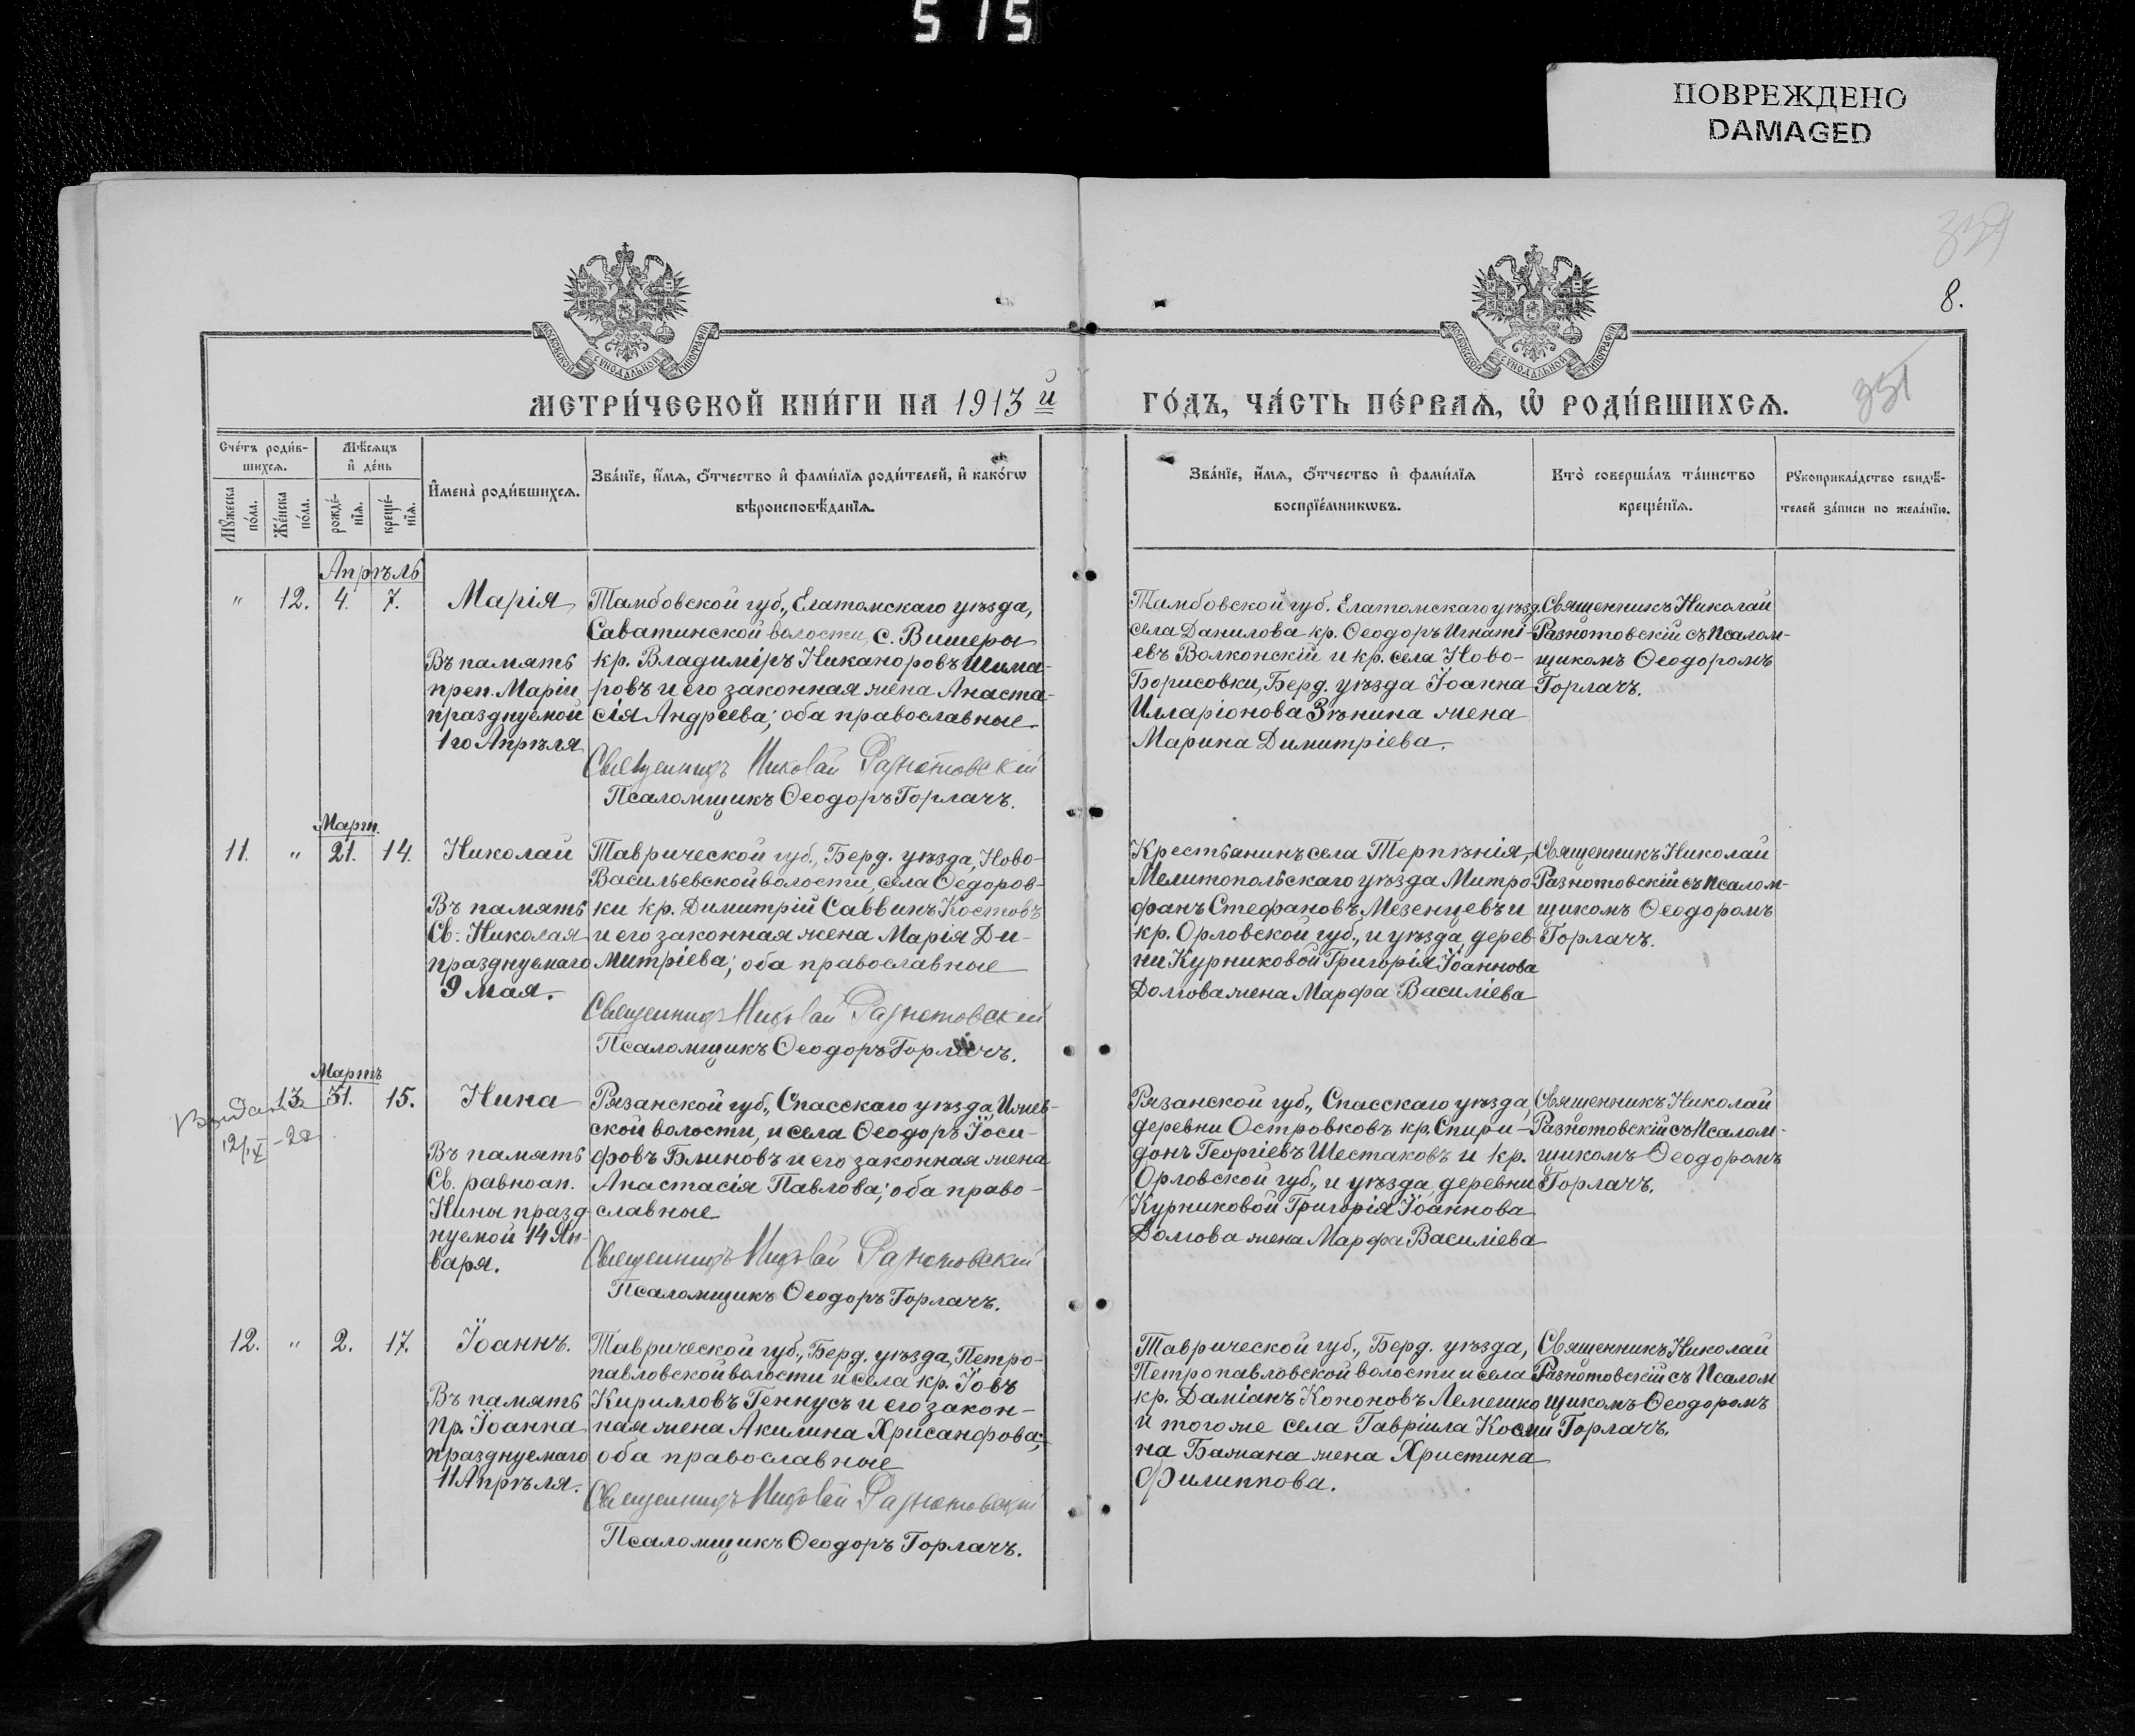 515
ПОВРЕЖДЕНО
DAMAGED
8.
351
МОСКОВСКОЙ СѴНОДАЛЬНОЙ ТИПОГРАФІИ
МОСКОВСКОЙ СѴНОДАЛЬНОЙ ТИПОГРАФІИ
МЕТРИ́ЧЕСКОЙ КНИ́ГИ НА 1913 й
ГО́ДЪ, ЧА́СТЬ ПЕ́РВАѦ, Ѡ҆ РОДИ́ВШИХСѦ.
Сче́тъ роди́в-
шихсѧ.
Мꙋ́жеска
по́ла.
Же́нска
по́ла.
Мѣ́сѧцъ
и҆ де́нь
рожде́-
нїѧ.
креще́-
нїѧ.
И҆мена̀ роди́вшихсѧ.
Зва́нїе, и҆́мѧ, ѻ҆́тчество и҆ фами́лїѧ роди́телей, и҆ како́гѡ
вѣроисповѣ́данїѧ.
Зва́нїе, и҆́мѧ, ѻ҆́тчество и҆ фами́лїѧ
воспрїе́мникѡвъ.
Кто̀ соверша́лъ та́инство
креще́нїѧ.
Рꙋкоприкла́дство свидѣ́-
телей за́писи по жела́нїю.
Апрѣль
" 12. 4. 7.
Марія
Въ память
преп. Маріи
празднуемой
1го Апрѣля
Тамбовской губ., Елатомскаго уѣзда,
Саватинской волости, с. Вишеры
кр. Владиміръ Никаноровъ Шима-
ровъ и его законная жена Анаста-
сія Андреева; оба православные.
Священникъ Николай Разнотовскій
Псаломщикъ Ѳеодоръ Горлачъ.
Тамбовской губ. Елатомскаго уѣзд.
села Данилова кр. Ѳеодоръ Игнаті-
евъ Волконскій и кр. села Ново-
Борисовки, Берд. уѣзда Іоанна
Илларіонова Зѣнина жена
Марина Димитріева.
Священникъ Николай
Разнотовскій съ Псалом-
щикомъ Ѳеодоромъ
Горлачъ.
Март.
11. " 21. 14.
Николай
Въ память
Св. Николая
празднуемаго
9 мая.
Таврической губ., Берд. уѣзда, Ново-
Васильевской волости, села Ѳедоров-
ки кр. Димитрій Саввинъ Костовъ
и его законная жена Марія Ди-
митріева; оба православные
Священникъ Николай Разнотовскій
Псаломщикъ Ѳеодоръ Горлачъ.
Крестьянинъ села Терпѣнія,
Мелитопольскаго уѣзда Митро-
фанъ Стефановъ Мезенцевъ и
кр. Орловской губ., и уѣзда, дерев-
ни Курниковой Григорія Іоаннова
Долгова жена Марфа Василіева
Священникъ Николай
Разнотовскій съ Псалом-
щикомъ Ѳеодоромъ
Горлачъ.
Мартъ
13. 31. 15.
12/IX
Нина
Въ память
Св. равноап.
Нины празд-
нуемой 14 Ян-
варя.
Рязанской губ., Спасскаго уѣзда, Ижев-
ской волости, и села Ѳеодоръ Іоси-
фовъ Блиновъ и его законная жена
Анастасія Павлова; оба право-
славные
Священникъ Николай Разнотовскій
Псаломщикъ Ѳеодоръ Горлачъ.
Рязанской губ., Спасскаго уѣзда,
деревни Островковъ кр. Спири-
донъ Георгіевъ Шестаковъ и кр.
Орловской губ., и уѣзда, деревни
Курниковой Григорія Іоаннова
Долгова жена Марфа Василіева
Священникъ Николай
Разнотовскій съ Псалом-
щикомъ Ѳеодоромъ
Горлачъ.
12. " 2. 17.
Іоаннъ.
Въ память
пр. Іоанна
празднуемаго
11 Апрѣля.
Таврической губ., Берд. уѣзда, Петро-
павловской волости и села кр. Іовъ
Кирилловъ Геннусъ и его закон-
ная жена Акилина Хрисанфова;
оба православные
Священникъ Николай Разнотовскій
Псаломщикъ Ѳеодоръ Горлачъ.
Таврической губ., Берд. уѣзда,
Петропавловской волости и села
кр. Даміанъ Кононовъ Лемешко
и того же села Гавріила Косми-
на Бажана жена Христина
Филиппова.
Священникъ Николай
Разнотовскій съ Псалом
щикомъ Ѳеодоромъ
Горлачъ.